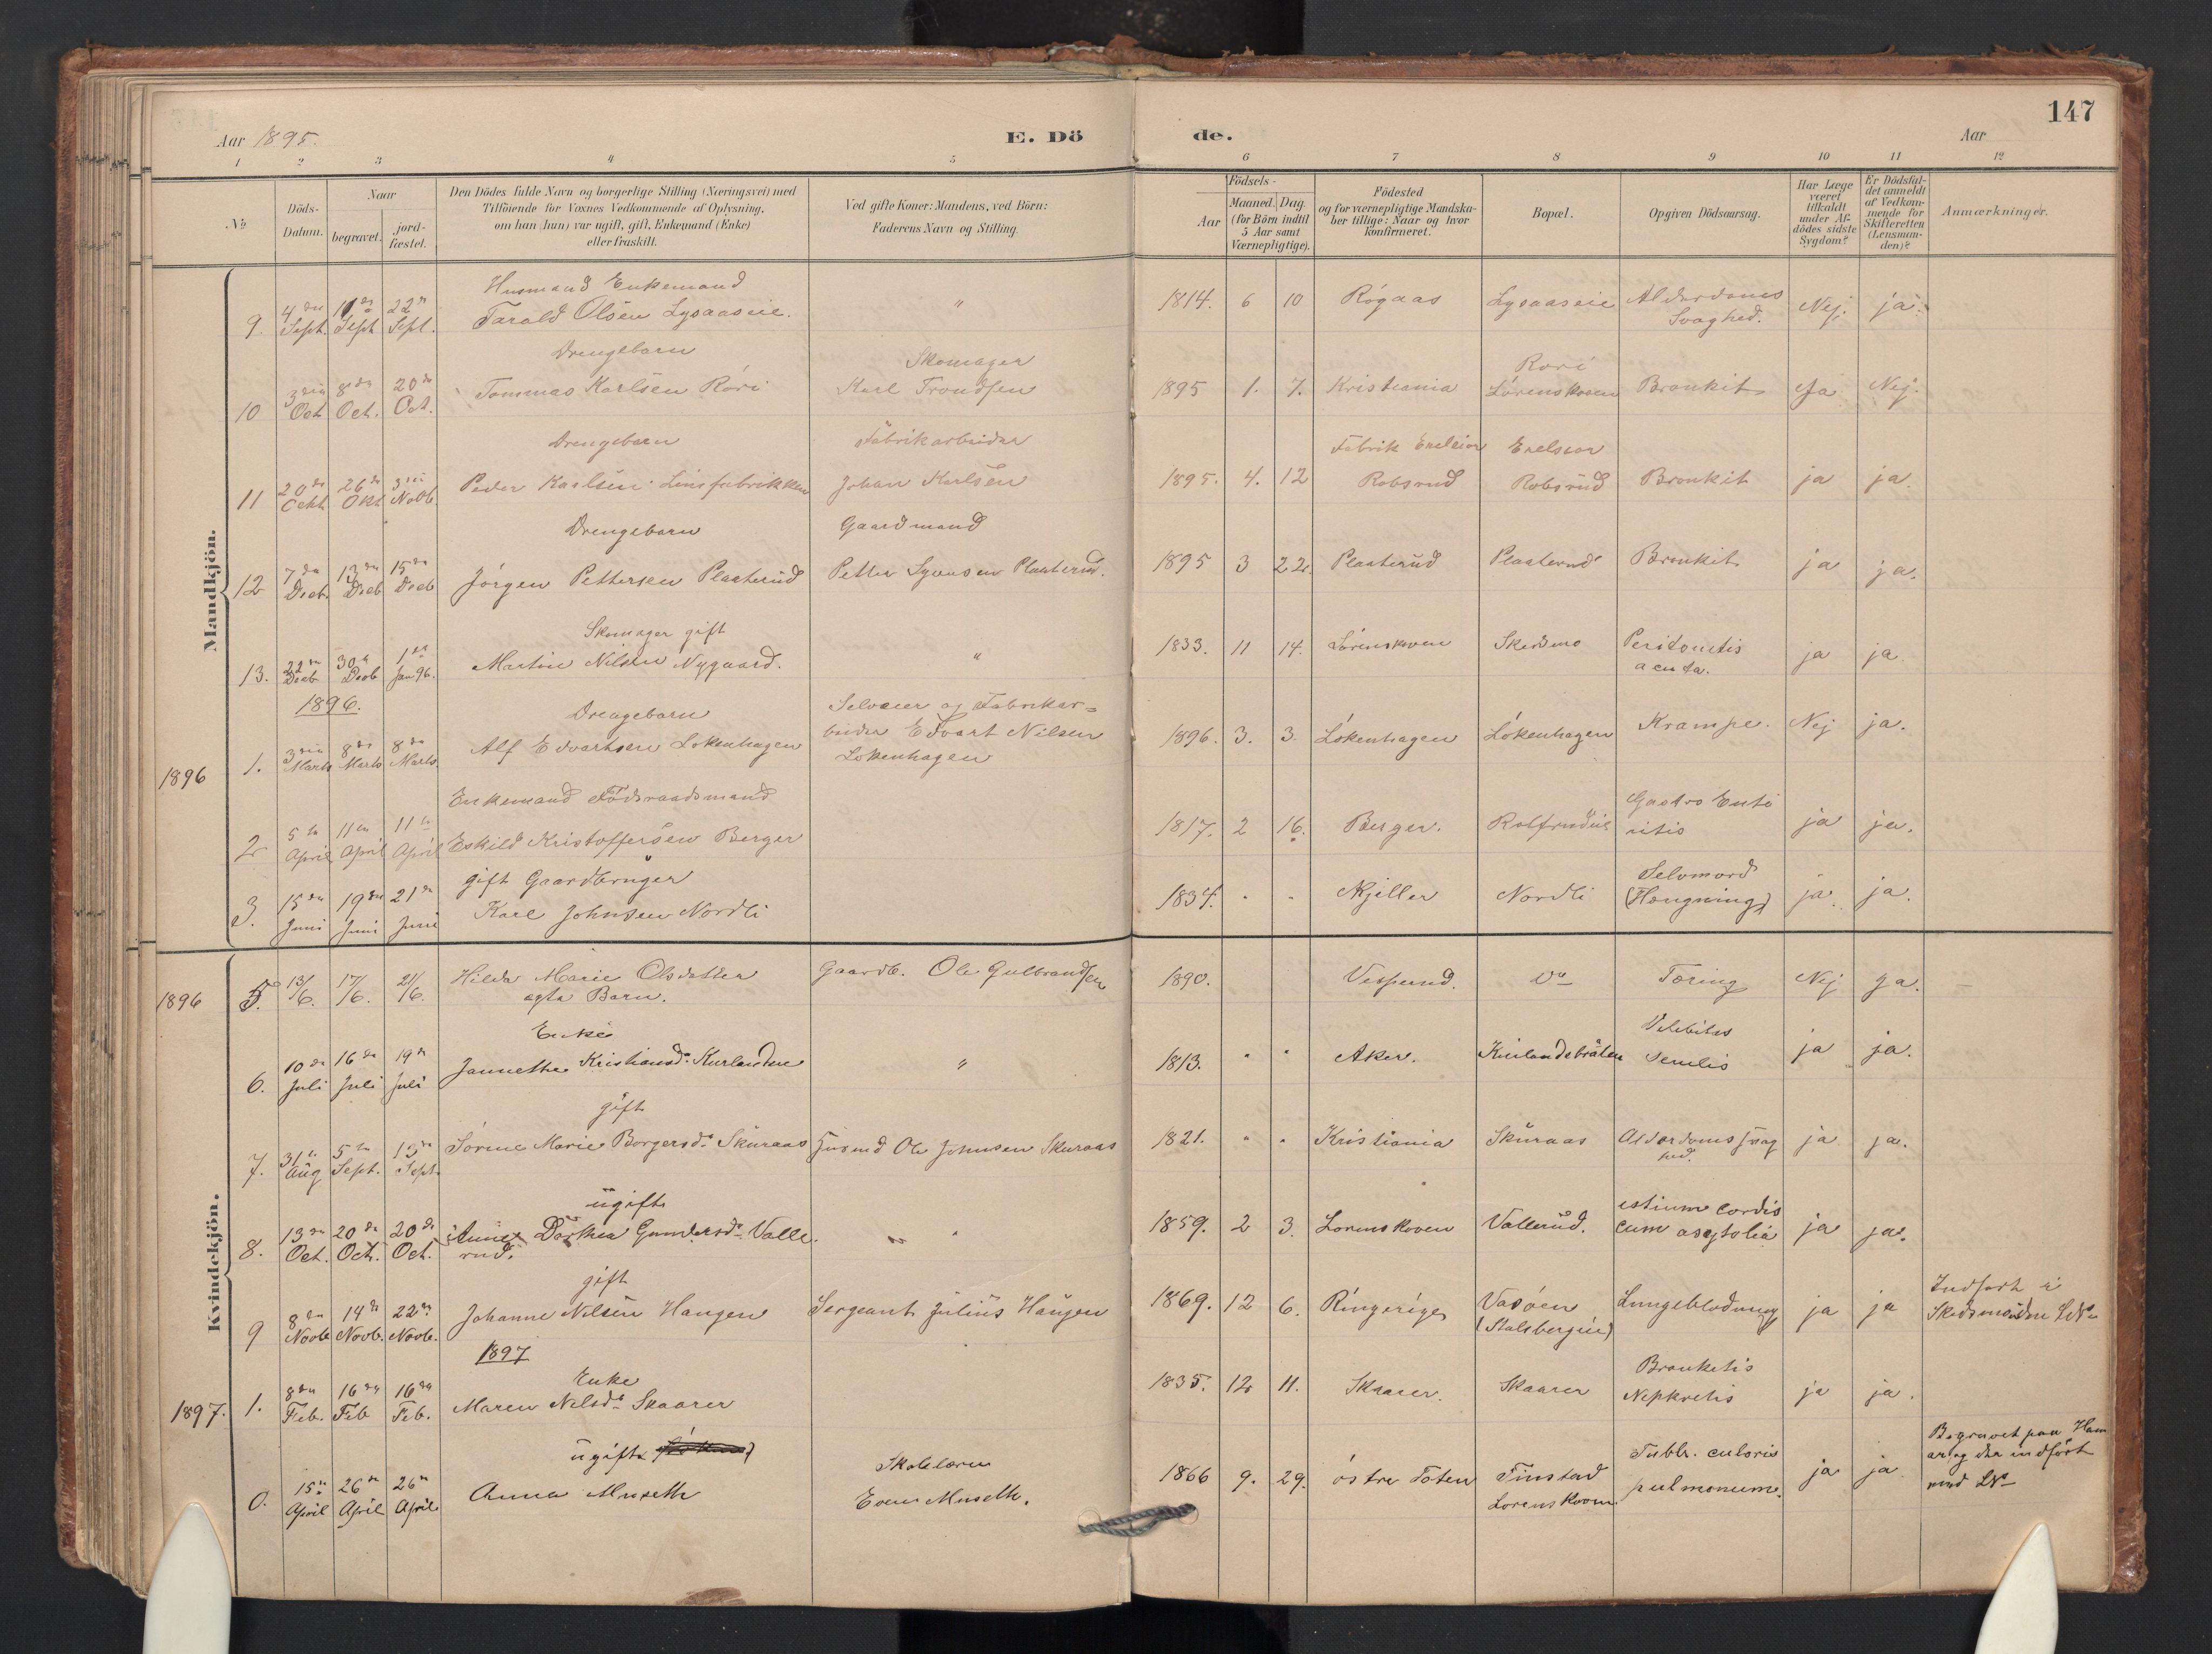 147
Aar 1895.
E. Dö
de.
Aar
1 2 3 4 5 6 7 8 9 10 11 12
No
Döds-
Datum.
Naar
begravet.
jord-
fæstet.
Den Dödes fulde Navn og borgerlige Stilling (Næringsvei) med
Tilföiende for Voxnes Vedkommende af Oplysning,
om han (hun) var ugift, gift, Enkemand (Enke)
eller fraskilt.
Ved gifte Koner: Mandens, ved Börn:
Faderens Navn og Stilling.
Födsels-
Aar
Maaned. Dag.
(for Börn indtil
5 Aar samt
Værnepligtige).
Födested
og for værnepligtige Mandska-
ber tillige: Naar og hvor
konfirmeret.
Bopæl.
Opgiven Dödsaarsag.
Har Læge
været
tilkaldt
under Af-
dödes sidste
Sygdom?
Er Dödsfal-
det anmeldt
af Vedkom-
mende for
Skifteretten
(Lensman-
den)?
Anmærkninger.
Mandkjön.
Husmand Enkemand
9. 4de Sept. Sept 22de Sept. Tarald Olsen Lysaaseie. " 1814. 6 10 Rógaas Lysaaseie Alderdoms Svaghed. Nej. ja.
Drengebarn Skomager
10 3die Oct 8de Oct. 20de Oct. Tommas Karlsen Róri Karl Trondsen 1895 1. 7. Kristiania Rori Lórenskoven Bronkit Ja Nej.
Drengebarn Fabrikarbeider
11 20de Ockt 26de Okt 3die Novb. Peder Karlsen Linsfabrikken Johan Karlsen 1895. 4. 12 Fabrik Robsrud Robsrud Bronkit ja ja.
Drengebarn Gaardmand
12 7de Decb. 13de Decb 15de Decb Jórgen Pettersen Plaaterud Petter Plaaterud. 1895 3 22. Plaaterud Plaaterud Bronkit ja ja.
Skomager gift
13. 22de Decb 30te Decb 1ste Jan 96. Martin Nilsen Nygaard. " 1833. 11 14. Lórenskoven Skedsmo Peritonitis acuta. ja ja
1896.
Drengebarn Selveier og Fabrikar=
1896 1. 3die Marts 8de Marts 8de Marts. Alf Edvartsen Lokenhagen beider Edvart Nilsen Lokenhagen 1896. 3. 3. Lókenhagen Lókenhagen Krampe. Nej ja.
Enkemand Födsraadsmand
2 5te April 11te April 11te April Eskild Kristoffersen Berger 1817. 2 16. Berger. Gastro Enteritis ja ja.
gift Gaardbruger
3. 15de Juni 19de Juni 21de Juni Karl Johnsen Nordli 1834. - - Kjeller Nordli Selvmord (Hængning) ja. ja.
Kvindekjön.
1896 5. 13/6. 17/6. 21/6. Hilda Marie Olsdatter Gaardb. Ole Gulbrandsen 1890. Do Tæring Nej ja.
ægte Barn.
Enke
6. 10de Juli 16de Juli 19de Juli Jannethe Kristiansd. Kurlanden " 1813. " " Aker. Kurlandsbråten Debilitas senilis ja ja.
gift
7. 31te Aug 5te Sept. 13de Sept. Sørine Marie Borgersd. Skuraas Husmd Ole Johnsen Skuraas 1821. " " Kristiania Skuraas Alderdomssvaghed. ja ja.
ugift
8. 13de Oct. 20de Oct. 20de Oct. Anne Dorthea Gundersd. Vallerud. 1859. 2 3. Lorenskoven Vallerud. cordis cum ja ja.
gift
9 8de Novb. 14de Novb. 22de Novb. Johanne Nilsen Haugen Sergeant Julius Haugen 1869. 12 6. Ringerige Vasóen (Stalsbergeie) Lungeblodning ja ja Indført i Skedsmo
1897
Enke
1897. 1. 8de Feb. 16de Feb 16de Feb. Maren Nilsd. Skaarer 1835. 12 11. Skaarer. Skaarer Bronketis Nephretis ja ja.
ugift Skolelærer
0. 15de April 26de April 26de April Anna Museth Even Museth. 1866 9. 29. óstre Toten Finstad Lorenskoven Tuberculoris pulmonum. ja ja Begravet paa Hamar og der indført med No